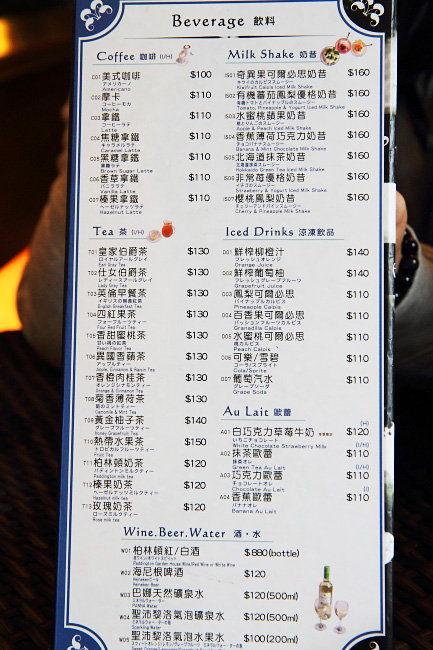 Beverage 飲料
Coffee 咖啡 (I/H)
C01 美式咖啡 $100
アメリカーノ
Americano
C02 摩卡 $110
コーヒーモカ
Mocha
C03 拿鐵 $110
コーヒーラテ
Latte
C04 焦糖拿鐵 $110
キャラメルラテ
Caramel Latte
C05 黑糖拿鐵 $110
黒糖ラテ
Brown Sugar Latte
C06 香草拿鐵 $110
バニララテ
Vanilla Latte
C07 榛果拿鐵 $110
ヘーゼルナッツラテ
Hazelnut Latte
Tea 茶 (I/H)
T01 皇家伯爵茶 $130
ロイヤルアールグレイ
Earl Gray Tea
T02 仕女伯爵茶 $130
レディースアールグレイ
Lady Gray Tea
T03 英倫早餐茶 $130
イギリスの朝食紅茶
English Breakfast Tea
T04 四紅果茶 $130
フォーフルーツティー
Four Red Fruit Tea
T05 香甜蜜桃茶 $130
Peach Flavor Tea
T06 異國香蘋茶 $130
アップルティー
Apple, Cinnamon & Raisin Tea
T07 香橙肉桂茶 $130
オレンジシナモンティー
Orange & Cinnamon Tea
T08 菊香薄荷茶 $130
Camomile & Mint Tea
T09 黃金柚子茶 $140
グレープフルーツティー
Honey Grapefruit Tea
T10 熱帶水果茶 $150
トロピカルフルーツティー
Tropical Fruit Tea
T11 柏林頓奶茶 $120
パディントンミルクティー
Paddington milk tea
T12 榛果奶茶 $120
ヘーゼルナッツミルクティー
Hazelnut milk tea
T13 玫瑰奶茶 $120
ローズミルクティー
Rose milk tea
Milk Shake 奶昔
IS01 奇異果可爾必思奶昔 $160
キウイのカルピススムージー
Kiwifruit Calpis Iced Milk Shake
IS02 有機蕃茄鳳梨優格奶昔 $160
有機トマトとパイナップルのスムージー
Tomato, Pineapple & Yogurt Iced Milk Shake
IS03 水蜜桃蘋果奶昔 $160
桃とりんごのスムージー
Apple & Peach Iced Milk Shake
IS04 香蕉薄荷巧克力奶昔 $160
チョコバナナスムージー
Banana & Mint Chocolate Milk Shake
IS05 北海道抹茶奶昔 $160
北海抹茶のスムージー
Hokkaido Green Tea Iced Milk Shake
IS06 非常莓優格奶昔 $160
イチゴのスムージー
Strawberry & Yogurt Iced Milk Shake
IS07 櫻桃鳳梨奶昔 $160
チェリーアンドパインスムージー
Cherry & Pineapple Milk Shake
Iced Drinks 涼凍飲品
D01 鮮榨柳橙汁 $140
フレッシュオレンジ
Orange Juice
D02 鮮榨葡萄柚 $140
フレッシュグレープフルーツ
Grapefruit Juice
D03 鳳梨可爾必思 $110
パインカルピス
Pineapple Calpis
D04 百香果可爾必思 $110
パッションフルーツカルピス
Granadilla Calpis
D05 水蜜桃可爾必思 $110
桃カルピス
Peach Calpis
D06 可樂/雪碧 $110
コーラ/スプライト
Cola/Sprite
D07 葡萄汽水 $110
グレープソーダ
Grape Soda
Au Lait 歐蕾
(H)
A01 白巧克力草莓牛奶 $120
いちごチョコレート
White Chocolate Strawberry Milk (I/H)
A02 抹茶歐蕾 $110
抹茶オレ
Green Tea Au Lait (I/H)
A03 巧克力歐蕾 $110
チョコレートオレ
Chocolate Au Lait (I)
A04 香蕉歐蕾 $110
バナナオレ
Banana Au Lait
Wine.Beer.Water 酒・水
W01 柏林頓紅/白酒 $880(bottle)
Paddington Garden House Wine/Red Wine or White Wine
W02 海尼根啤酒 $120
Heineken Beer
W03 巴娜天然礦泉水 $120(500ml)
ミネラルウォーター
PANNA Water
W04 聖沛黎洛氣泡礦泉水 $120(500ml)
Sparkling Water
W05 聖沛黎洛氣泡水果水 $100(200ml)